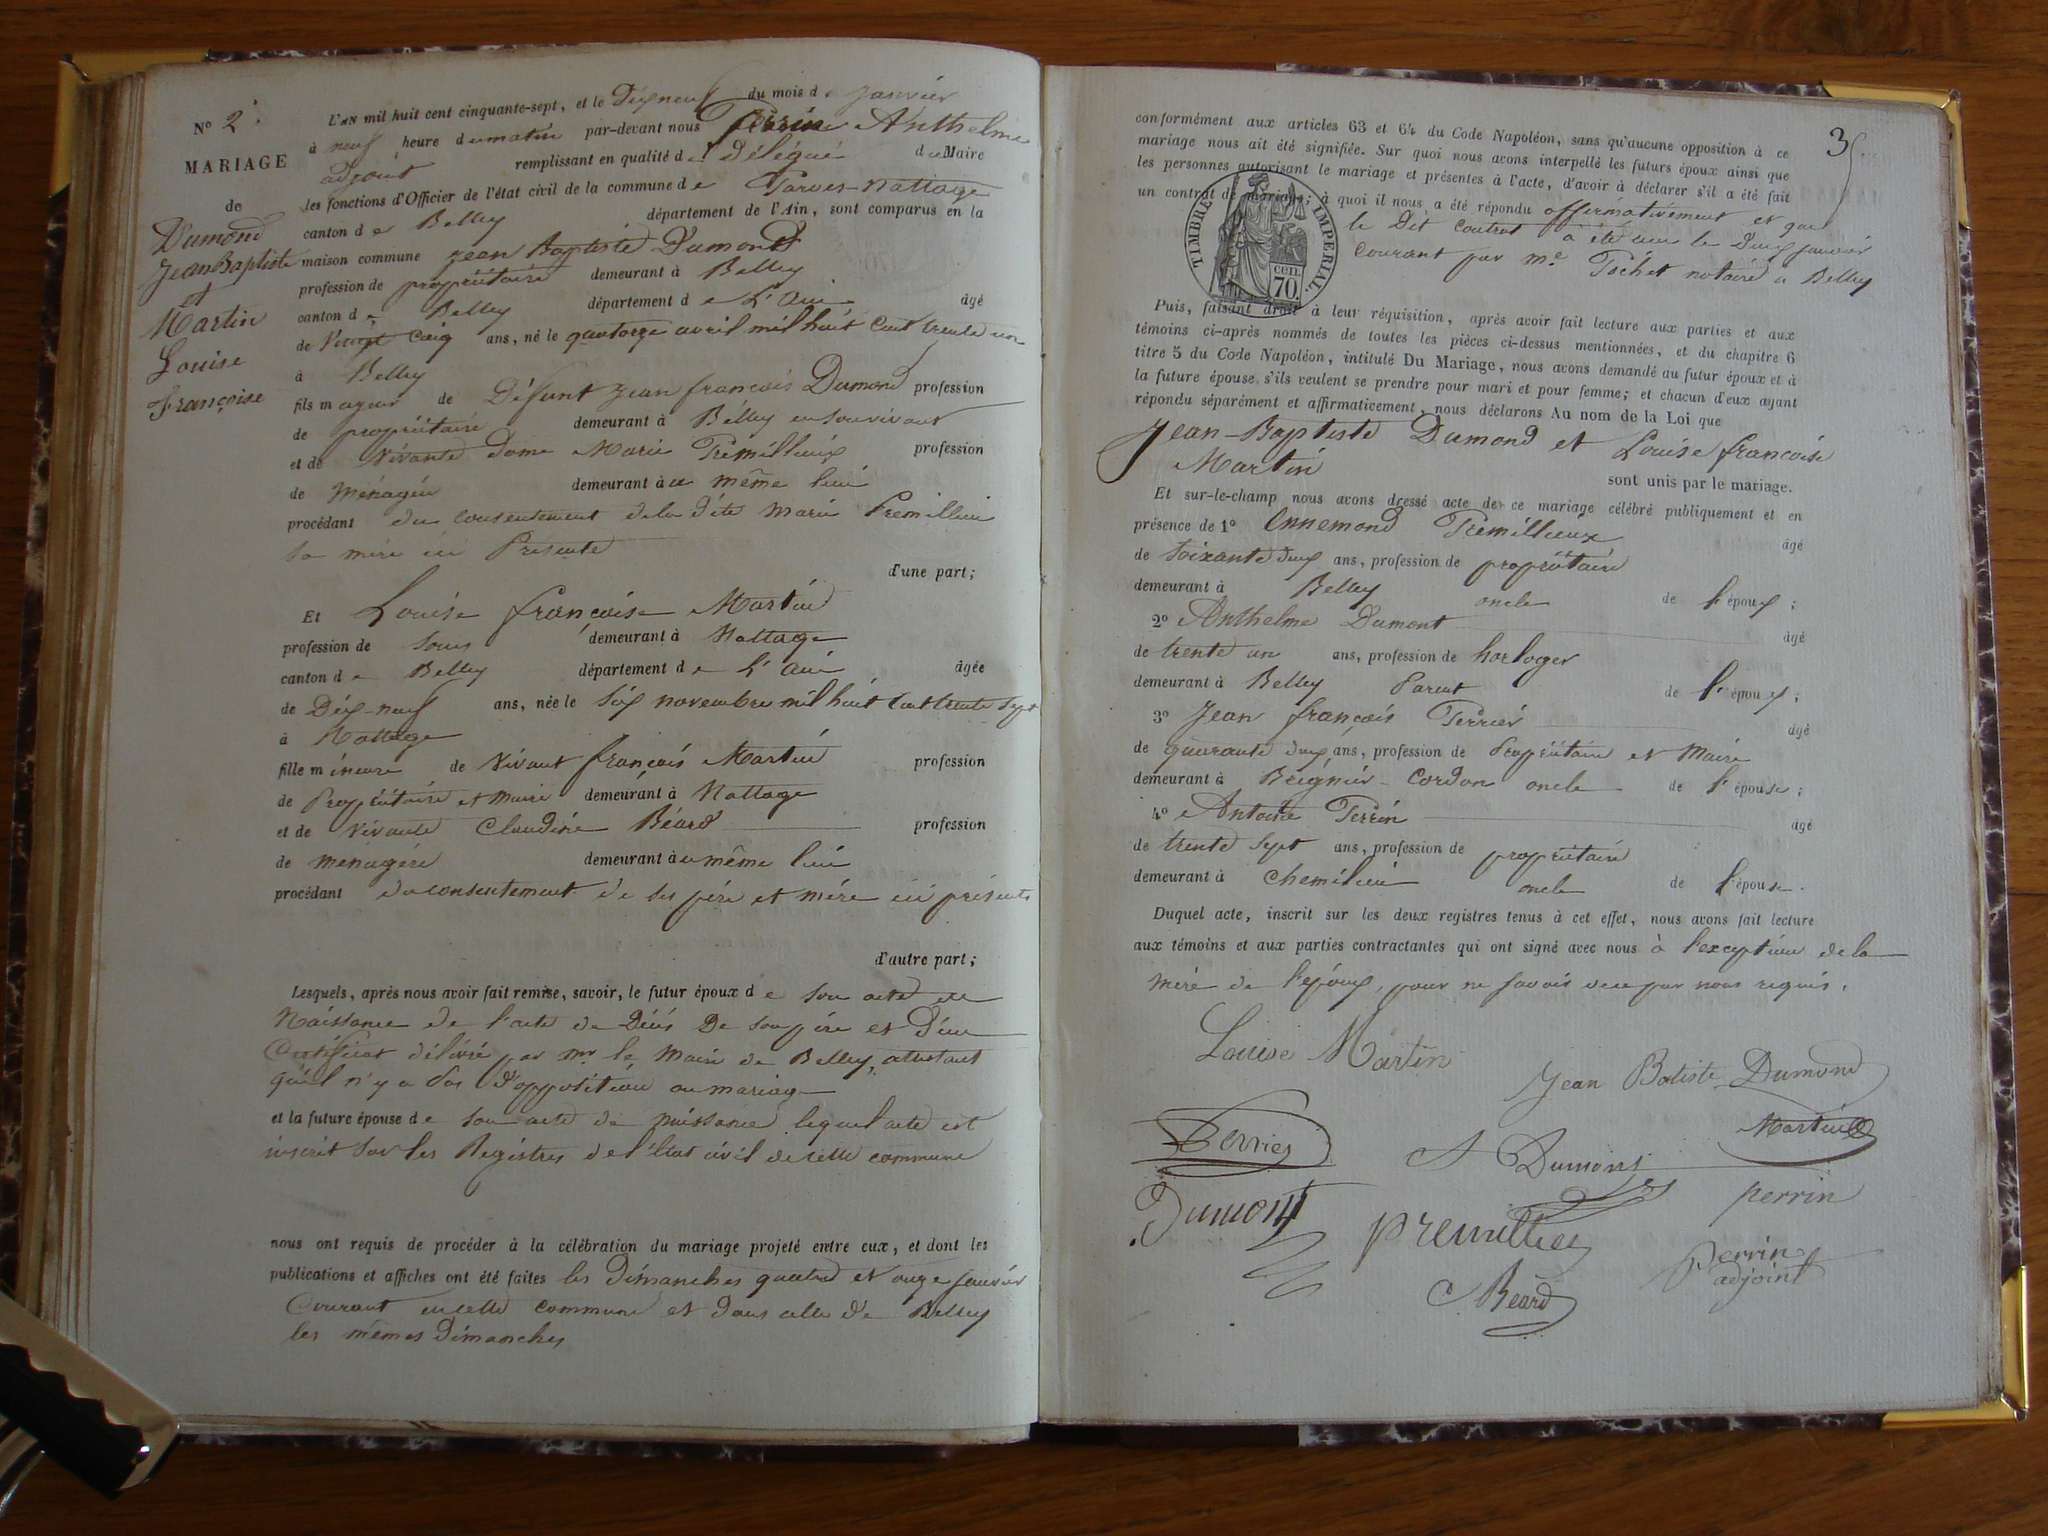 N° 2.
MARIAGE
de
Dumond
Jean Baptiste
et
Martin
Louise
Françoise
L'AN mil huit cent cinquante-sept, et le Dixneuf du mois de janvier
à neuf heure du matin par-devant nous Perrin Anthelme
adjoint remplissant en qualité de délégué du Maire
les fonctions d'Officier de l'état civil de la commune de Parves-nattage
canton de Belley département de l'Ain, sont comparus en la
maison commune Jean Baptiste Dumond
profession de propriétaire demeurant à Belley
canton de Belley département de L'Ain âgé
de Vingt Cinq ans, né le quatorze avril mil huit cent trente un
à Belley
fils majeur de Défunt Jean françois Dumond profession
de propriétaire demeurant à Belley en son vivant
et de Vivante Dame Marie Prémillieux profession
de Ménagère demeurant à au même lieu
procédant du consentement de la dite Marie Premillieu
sa mère ici Présente
d'une part;
Et Louise françoise Martin
profession de demeurant à Nattage
canton de Belley département de L'Ain âgée
de Dix-neuf ans, née le Six novembre mil huit cent trente sept
à Nattage
fille mineure de Vivant françois Martin profession
de Propriétaire et Maire demeurant à Nattage
et de Vivante Claudine Béard profession
de menagère demeurant à au même lieu
procédant du consentement de ses père et mère ici présents
d'autre part;
Lesquels, après nous avoir fait remise, savoir, le futur époux de son acte de
Naissance de l'acte de Décès De son père et D'un
Certificat délivré par Mr le Maire de Belley, attestant
qu'il n'y a pas d'opposition au mariage
et la future épouse de son acte de naissance lequel acte est
inscrit sur les Registres de l'Etat civil de cette commune
nous ont requis de procéder à la célébration du mariage projeté entre eux, et dont les
publications et affiches ont été faites les Dimanches quatre et onze Janvier
Courant en cette commune et dans celle de Belley
les mêmes Dimanches
3
conformément aux articles 63 et 64 du Code Napoléon, sans qu'aucune opposition à ce
mariage nous ait été signifiée. Sur quoi nous avons interpellé les futurs époux ainsi que
les personnes autorisant le mariage et présentes à l'acte, d'avoir à déclarer s'il a été fait
un contrat de mariage; à quoi il nous a été répondu affirmativement et que
le Dit contrat a été reçu le Deux janvier
courant par Me Pochet notaire à Belley
TIMBRE IMPERIAL.
70 cen.
Puis, faisant droit à leur réquisition, après avoir fait lecture aux parties et aux
témoins ci-après nommés de toutes les pièces ci-dessus mentionnées, et du chapitre 6
titre 5 du Code Napoléon, intitulé Du Mariage, nous avons demandé au futur époux et à
la future épouse s'ils veulent se prendre pour mari et pour femme; et chacun d'eux ayant
répondu séparément et affirmativement, nous déclarons Au nom de la Loi que
Jean-Baptiste Dumond et Louise françoise
Martin
sont unis par le mariage.
Et sur-le-champ nous avons dressé acte de ce mariage célébré publiquement et en
présence de 1° Ennemond Prémillieux âgé
de Soixante deux ans, profession de propriétaire
demeurant à Belley oncle de l'époux;
2° Anthelme Dumont âgé
de trente un ans, profession de horloger
demeurant à Belley Parent de l'époux;
3° Jean françois Perrier âgé
de quarante deux ans, profession de Propriétaire et Maire
demeurant à Brégnier-Cordon oncle de l'épouse;
4° Antoine Perrin âgé
de trente Sept ans, profession de propriétaire
demeurant à Chemilieu oncle de l'épouse.
Duquel acte, inscrit sur les deux registres tenus à cet effet, nous avons fait lecture
aux témoins et aux parties contractantes qui ont signé avec nous à l'exception de la
mère de l'époux, pour ne savoir de ce par nous requis.
Louise Martin
Jean Batiste Dumond
Perrier
A Dumont
Martin
Dumont
premillieu
perrin
C Béard
Perrin
adjoint